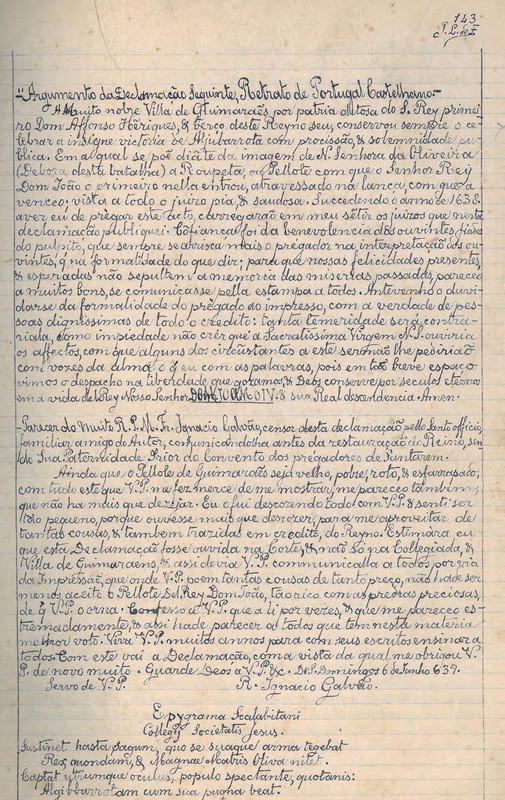 143
P. L. de F.
"Argumento da Declamação Seguinte, Retrato de Portugal Castelhano."
A Muito nobre Villa de Guimarães por patria ditosa do S. Rey primei-
ro Dom Affonso Hẽriques, & berço deste Reyno seu, conservou sempre o ce-
lebrar a insigne victoria de Aljubarrota com procissão, & solemnidade pu-
blica. Em a qual se põe diãte da imagem de N. Senhora da Oliveira
(Debora desta batalha) a Roupeta, ou Pellote com que o Senhor Rey
Dom João o primeiro nella entrou, atravessado na lança, com que a
venceo; vista a todo o juizo pia, & saudosa. Succedendo o anno de 1638.
aver eu de prègar este acto, carregarão em meu sẽtir os juizos que nesta
declamação publiquei. Cõfiança foi da benevolencia dos ouvintes fiados
do pulpito, que sempre se arrisca mais o prègador na intẽrpretação dos ou-
vintes, q̃ na formalidade do que diz; para que nossas felicidades presentes,
& esperadas não sepultem a memoria das miserias passadas, pareceo
a muitos bons, se comunicasse pella estampa a todos. Antevenho o duvi-
darse da formalidade do prègado ao impresso, com a verdade de pes-
soas dignissimas de todo o credito: tanta temeridade será contra-
riala, como impiedade não crèr que a Sacratissima Virgem N. S. ouviria
os affectos, com que alguns dos circũstantes a este sermão lhe pedirião
com vozes da alma, o q̃ eu com as palavras, pois em tão breve espaço
vimos o despacho na liberdade que gozamos, & Deos conserve por seculos eternos
em a vida del Rey Nosso Senhor DOM JOAM O IV. & sua Real descendencia. Amen.
Parecer do Muito R. P. M. Fr. Ignacio Galvão, censor desta declamação pello Santo officio,
familiar amigo do Autor, comunicãdolha antes da restauração do Reino, sen-
do Sua Paternidade Prior do Convento dos prègadores de Santarem.
Ainda que o Pellote de Guimarães seja velho, pobre, roto, & esfarrapado,
com tudo este que V. P. me fez merce de me mostrar, me pareceo tambẽ mim,
que não ha mais que dezejar. Eu o fui descozendo todo com V. P. & senti ser
tão pequeno, porque ouvesse mais que descozer, para me aproveitar de
tantas cousas, & tambem trazidas em credito, do Reyno. Estimára eu
que esta Declamação fosse ouvida na Corte, & não só na Collegiada, &
Villa de Guimaraens, & assi devia V. P. communicalla a todos por via
da Impressão, que onde V. P. poem tantas cousas de tanto preço, não hade ser
menos aceite o Pellote Del Rey Dom João, tão rico com as pedras preciosas,
de q̃ V. P. o orna. Confesso a V. P. que a li por vezes, & que me pareceo es-
tremadamente, & assi hade parecer a todos que tem nesta materia
melhor voto. Viva V. P. muitos annos para com seus escritos ensinar a
todos. Com este vai a Declamação, com a vista da qual me obrigou V.
P. de novo muito. Guarde Deos a V. P. &c. De S. Domingos 6 de Junho 639.
Servo de V. P. R. Ignacio Galvão.
Epygrama Scalabitani
Collegij Societatis Jesus.
Sustinet hasta sagum, quo se suaque arma tegebat
Rex, quondam, & Magnae Matris Oliva nitet.
Captat utrumque oculus, populo spectante, quotanis:
Algibbarrotam cum sua pugna beat.